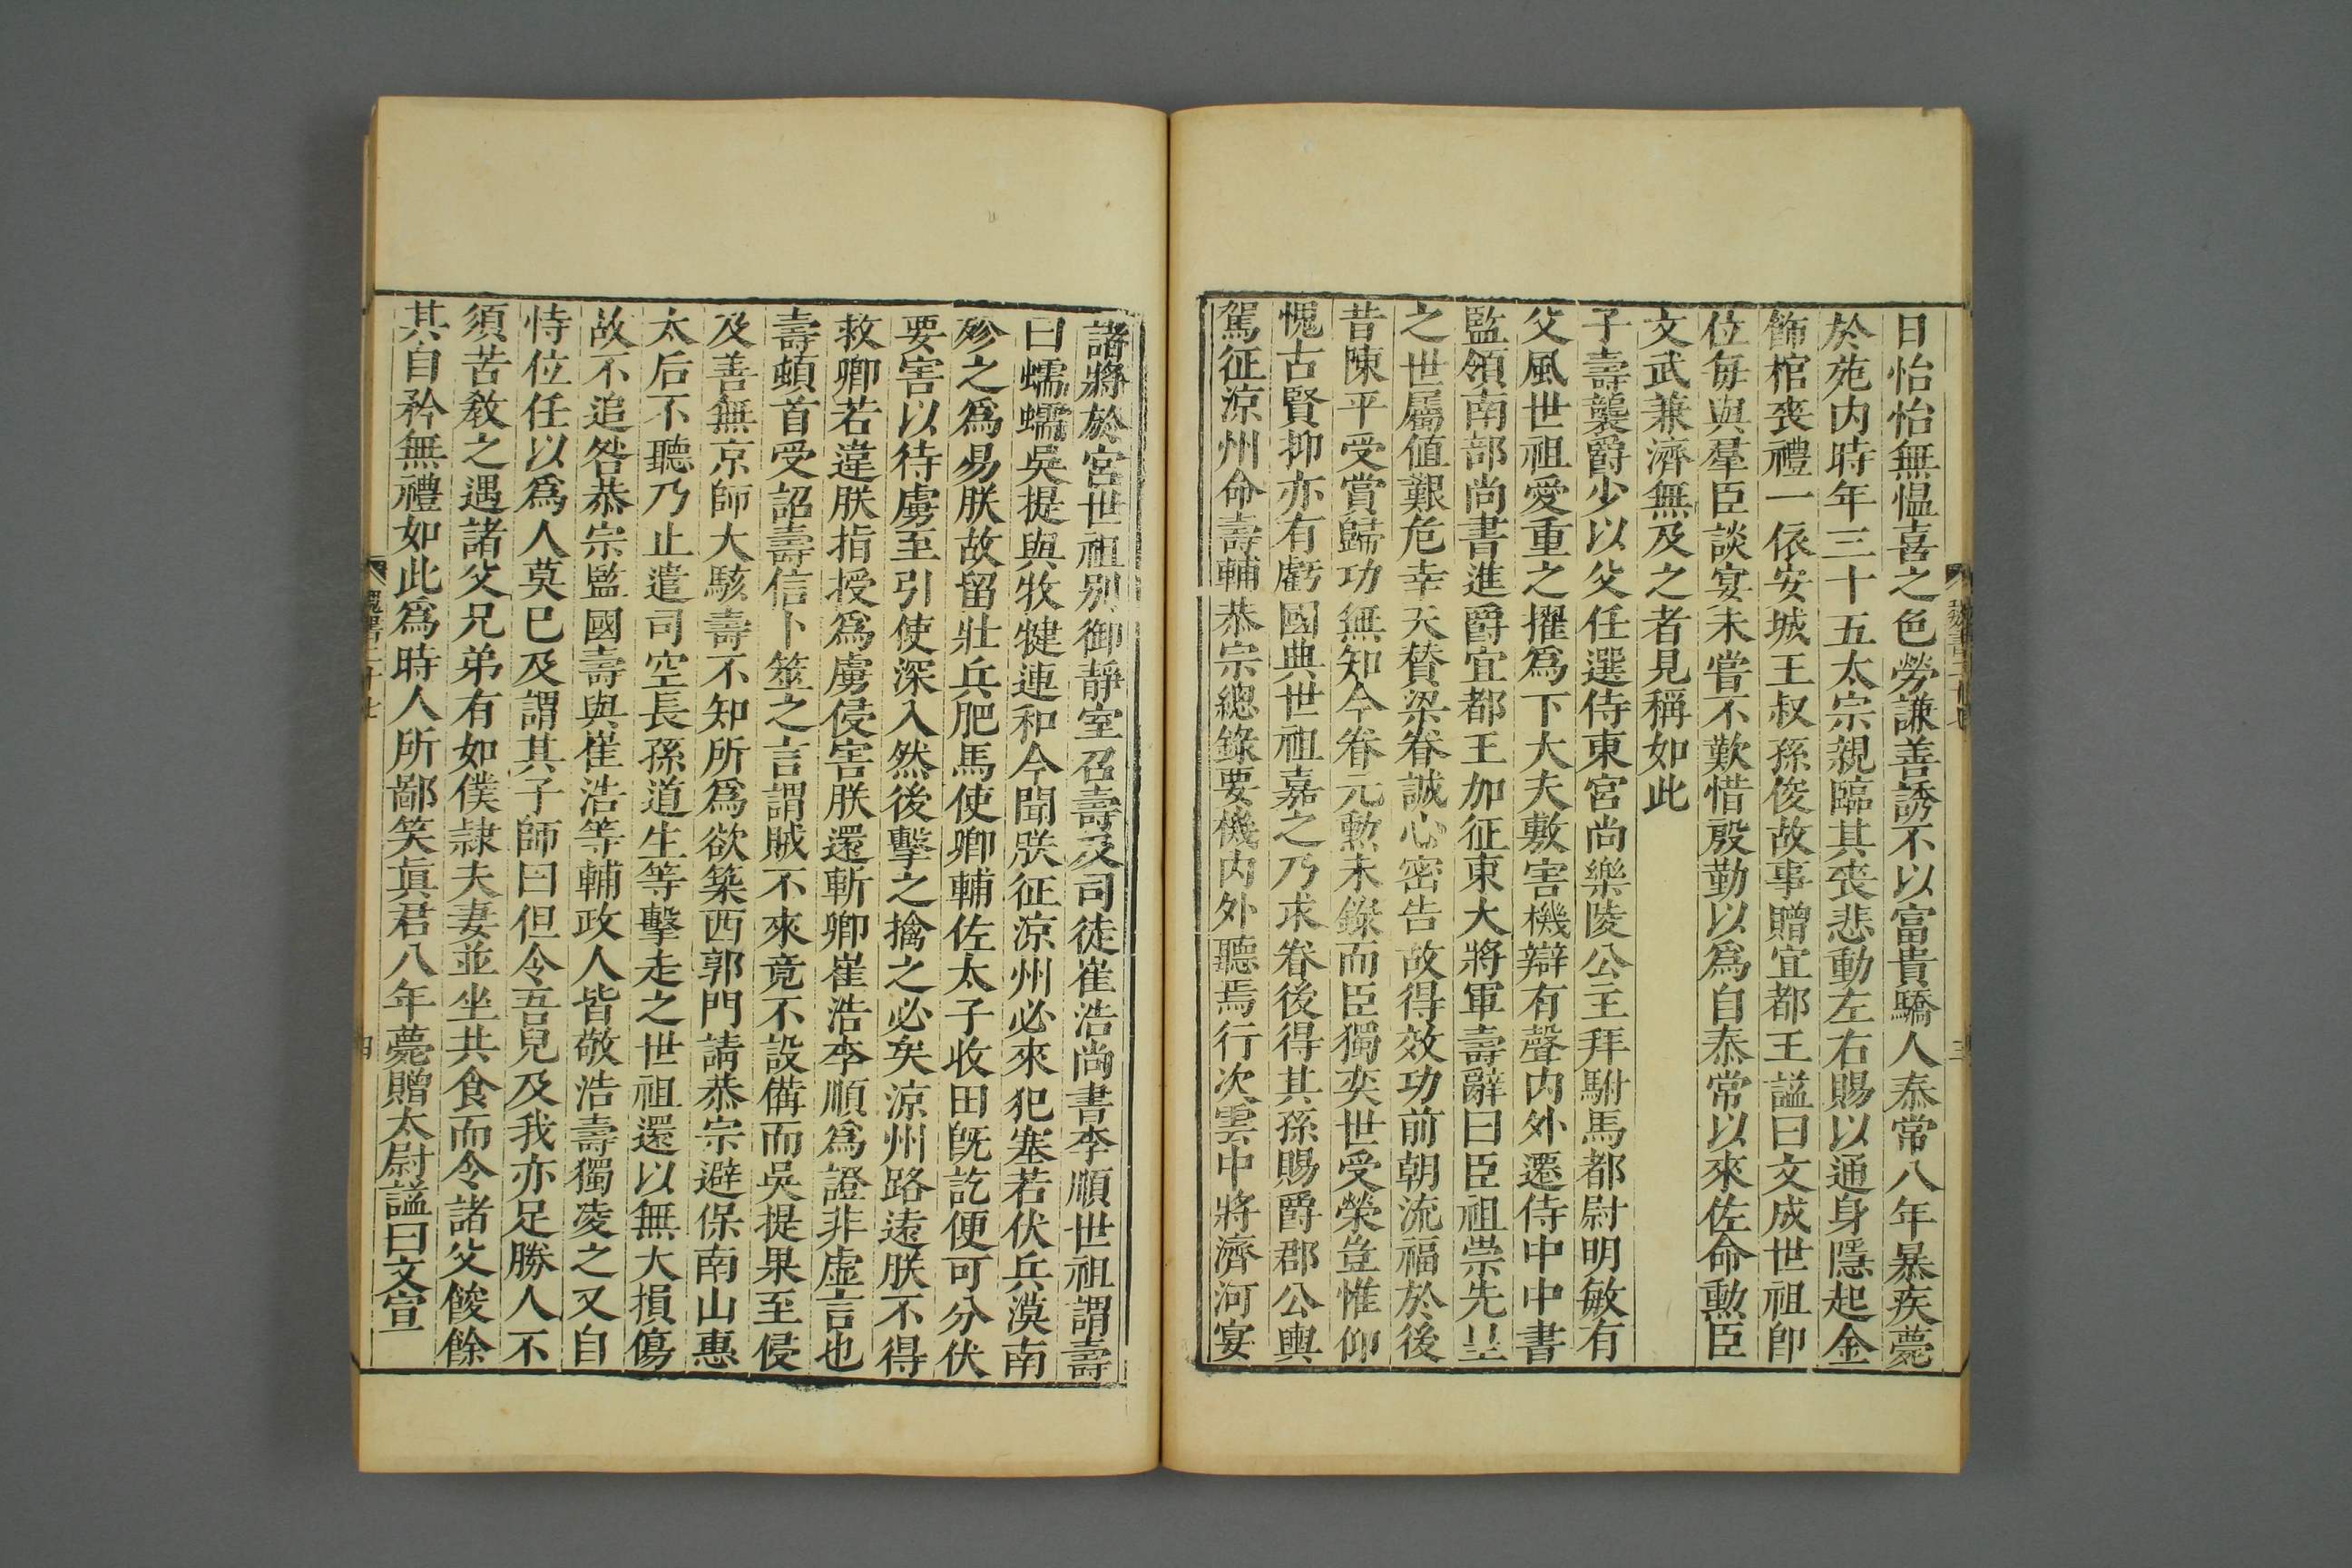 日怡怡無愠喜之色勞謙善誘不以富貴驕人泰常八年暴疾薨
於苑内時年三十五太宗親臨其喪悲動左右賜以通身隱起金
飾棺喪禮一依安城王叔孫俊故事贈宜都王謚曰文成世祖卽
位每與羣臣談宴未嘗不歎惜殷勤以爲自泰常以來佐命勲臣
文武兼濟無及之者見稱如此
子壽襲爵少以父任選侍東宮尚樂陵公主拜駙馬都尉明敏有
父風世祖愛重之擢爲下大夫敷害機辯有聲内外遷侍中中書
監領南部尚書進爵宜都王加征東大將軍壽辭曰臣祖崇先皇
之世屬值艱危幸天賛梁眷誠心密告故得效功前朝流福於後
昔陳平受賞歸功無知今眷元勲未錄而臣獨奕世受榮豈惟仰
愧古賢抑亦有虧國典世祖嘉之乃求眷後得其孫賜爵郡公輿
駕征涼州命壽輔恭宗總錄要機内外聽焉行次雲中將濟河宴
諸將於宮世祖别御靜室召壽及司徒崔浩尚書李順世祖謂壽
曰蠕蠕吳提與牧犍連和今聞朕征涼州必來犯塞若伏兵漠南
殄之爲易朕故留壯兵肥馬使卿輔佐太子收田旣訖便可分伏
要害以待虜至引使深入然後擊之擒之必矣涼州路遠朕不得
救卿若違朕指授爲虜侵害朕還斬卿崔浩李順爲證非虛言也
壽頓首受詔壽信卜筮之言謂賊不來竟不設備而吳提果至侵
及善無京師大駭壽不知所爲欲築西郭門請恭宗避保南山惠
太后不聽乃止遣司空長孫道生等擊走之世祖還以無大損傷
故不追咎恭宗監國壽與崔浩等輔政人皆敬浩壽獨凌之又自
恃位任以爲人莫巳及謂其子師曰但令吾兒及我亦足勝人不
須苦敎之遇諸父兄弟有如僕隷夫妻並坐共食而令諸父餕餘
其自矜無禮如此爲時人所鄙笑眞君八年薨贈太尉謚曰文宣
四